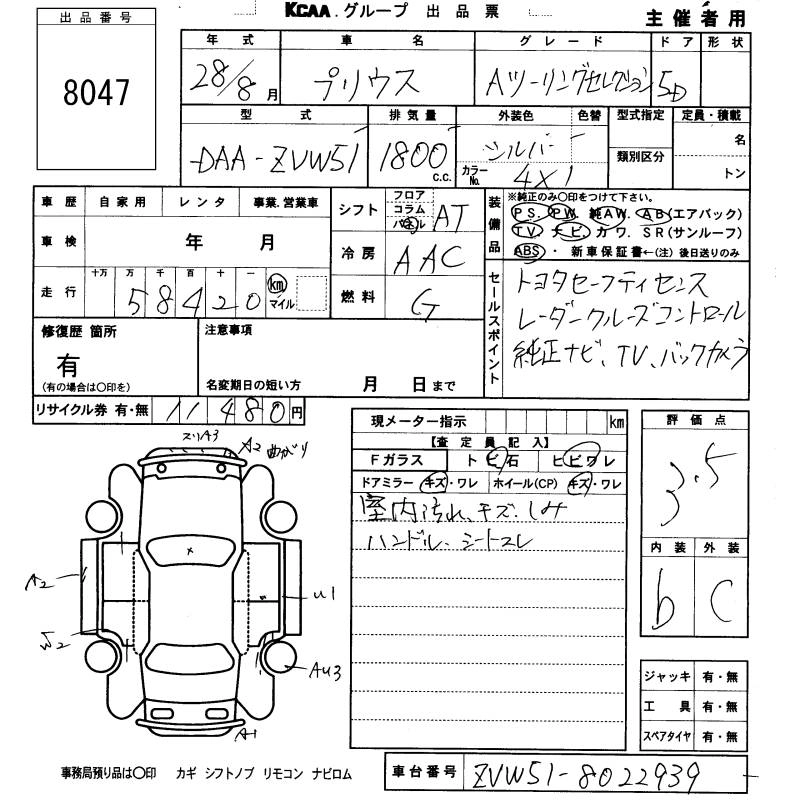 KCAA.グループ 出品票
主催者用
出品番号
8047
年式 車名 グレード ドア 形状
28/8月 プリウス Aツーリングセレクション 5D
型式 排気量 外装色 色替 型式指定 定員・積載
DAA-ZVW51 1800 c.c. シルバー 名
カラーNo. 4X1 類別区分 トン
車歴 自家用 レンタ 事業.営業車
シフト フロア コラム パネル AT
装備品 ※純正のみ〇印をつけて下さい。
PS. PW. 純AW. AB(エアバック)
TV. ナビ. カワ. SR(サンルーフ)
ABS・ 新車保証書←(注) 後日送りのみ
車検 年 月
冷房 AAC
走行 十万 万 千 百 十 一
58420 km マイル
燃料 G
セールスポイント
トヨタセーフティセンス
レーダークルーズコントロール
純正ナビ、TV、バックカメラ
修復歴 箇所
有
(有の場合は〇印を)
注意事項
名変期日の短い方 月 日まで
リサイクル券 有・無 11480円
現メーター指示 km
【査定員記入】
Fガラス トビ石 ヒビワレ
ドアミラー キズ・ワレ ホイール(CP) キズ・ワレ
室内汚れ、キズ、しみ
ハンドル、シートスレ
評価点
3.5
内装 外装
b C
スリA3
A2 曲がり
A2
U1
W2
AU3
A1
ジャッキ 有・無
工具 有・無
スペアタイヤ 有・無
事務局預り品は〇印 カギ シフトノブ リモコン ナビロム
車台番号 ZVW51-8022939